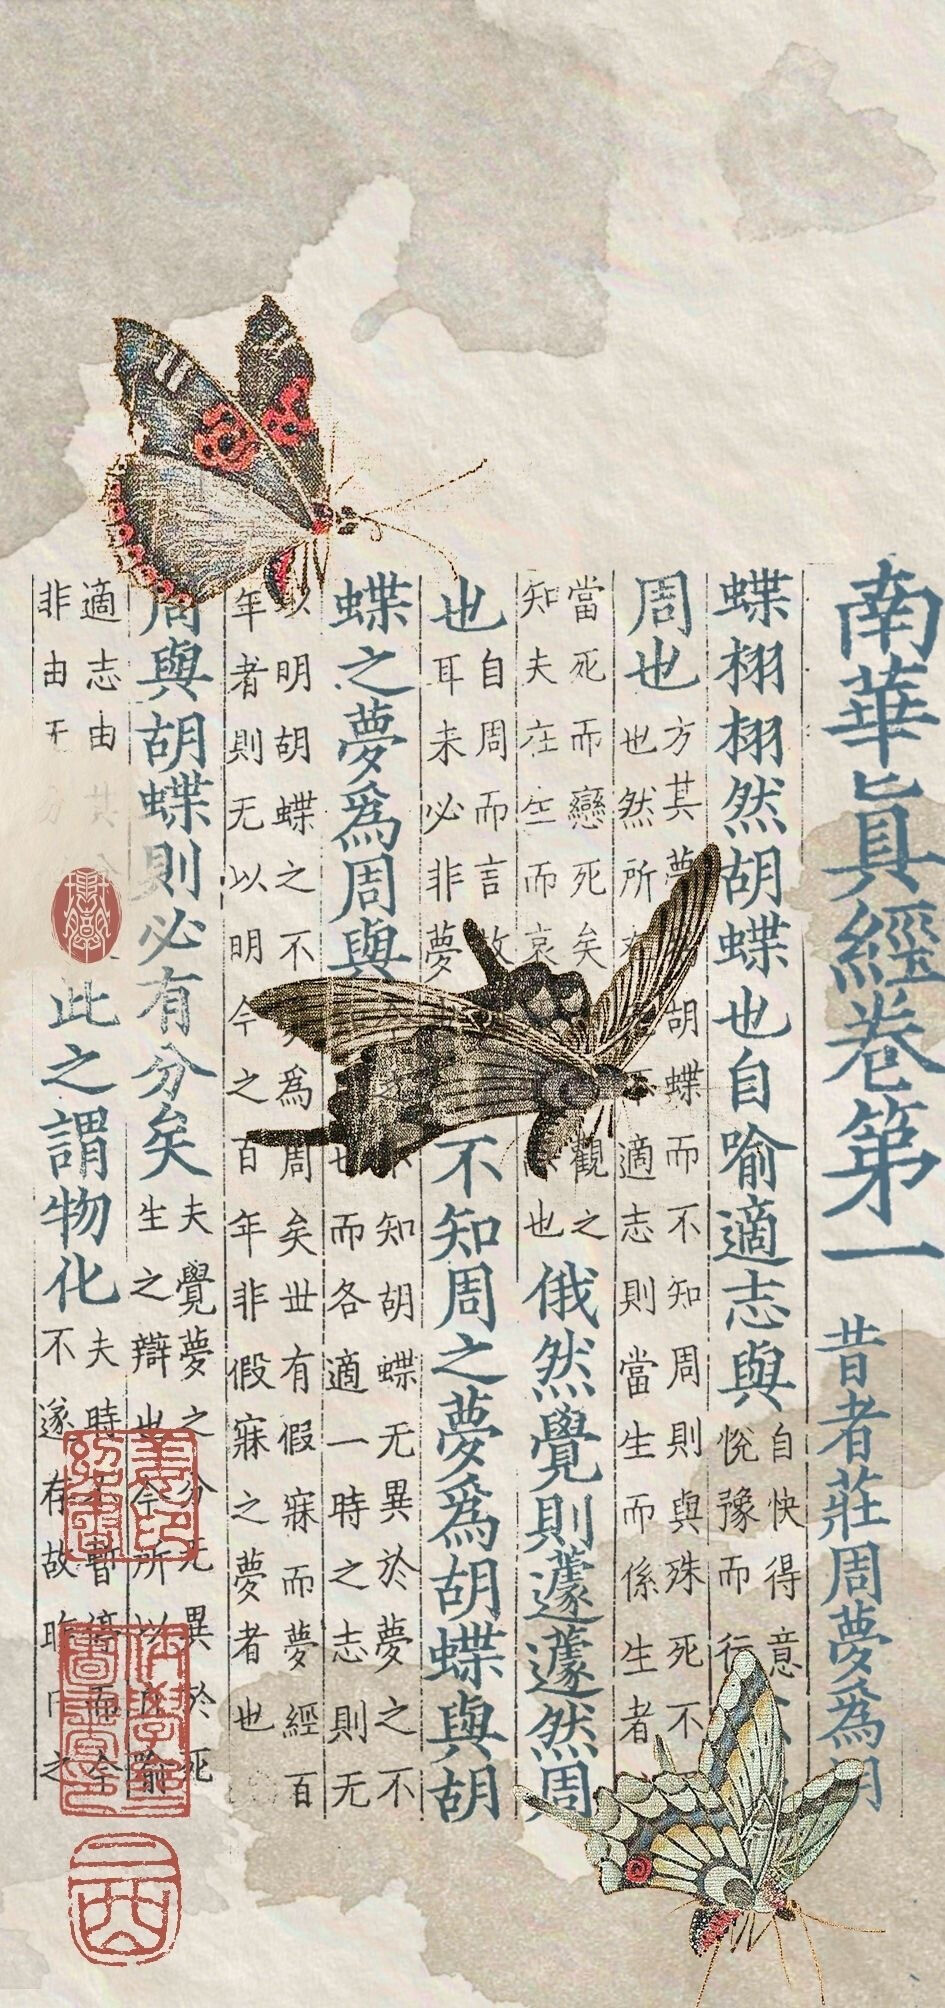 南華眞經卷第一
昔者莊周夢爲胡
蝶栩栩然胡蝶也自喻適志與
自快得意
悅豫而行
周也
方其夢胡蝶而不知周則與殊死不
也然所適志則當生而係生者
當死而戀死矣觀之
知夫在生而哀也
俄然覺則蘧蘧然周
也
自周而言故
耳未必非夢
不知周之夢爲胡蝶與胡
蝶之夢爲周與
知胡蝶无異於夢之不
也而各適一時之志則无
以明胡蝶之不爲周矣世有假寐而夢經百
年者則无以明今之百年非假寐之夢者也
周與胡蝶則必有分矣
夫覺夢之分无異於死
生之辯也今所以自喻
適志由其
非由无
此之謂物化
夫時不暫停而今
不遂存故昨日之